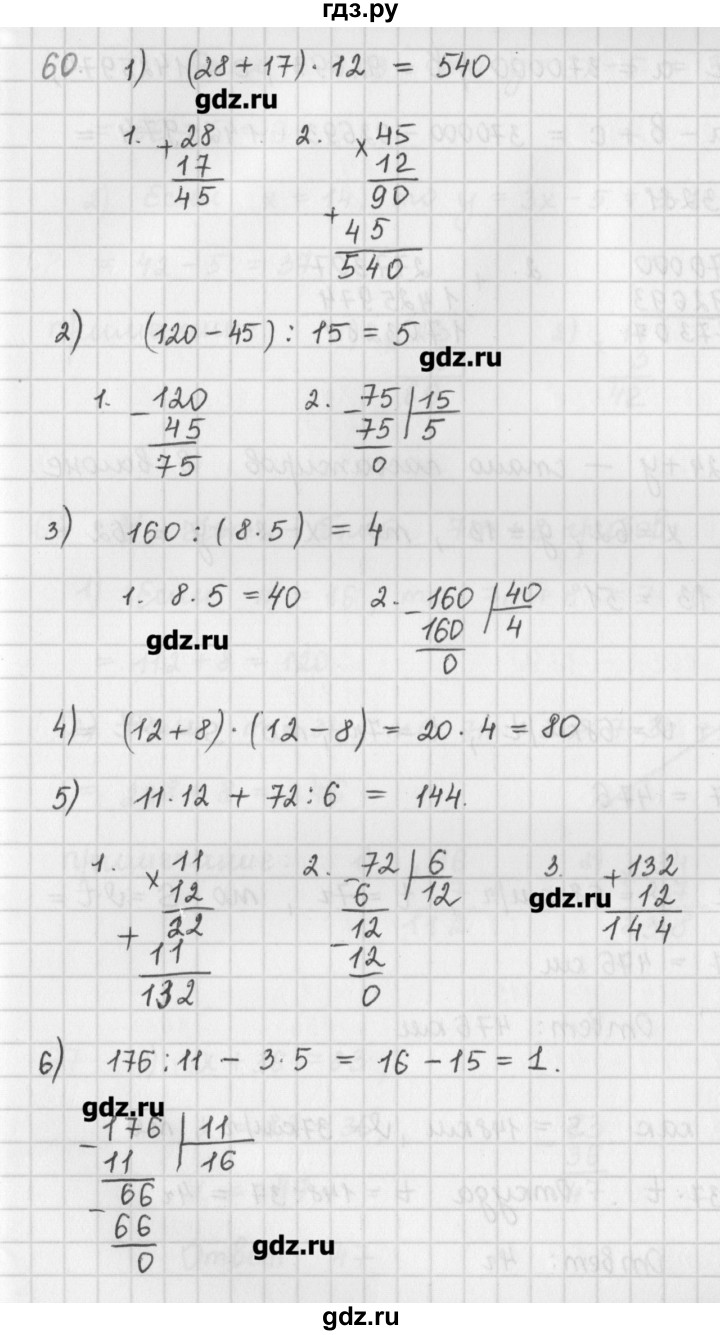 гдз.ру
60. 1) (28+17)·12 = 540
gdz.ru
1. + 28 2. × 45
17 12
45 90
+ 45
540
2) (120-45) : 15 = 5
gdz.ru
1. - 120 2. - 75 | 15
45 75 | 5
75 0
3) 160 : (8·5) = 4
1. 8·5 = 40 2. - 160 | 40
gdz.ru 160 | 4
0
4) (12+8)·(12-8) = 20·4 = 80
5) 11·12 + 72:6 = 144.
1. × 11 2. - 72 | 6 3. + 132
12 6 | 12 gdz.ru 12
22 12 144
+ 11 - 12
132 0
6) 176:11 - 3·5 = 16 - 15 = 1.
gdz.ru
- 176 | 11
11 | 16
66
- 66
0 gdz.ru
gdz.ru